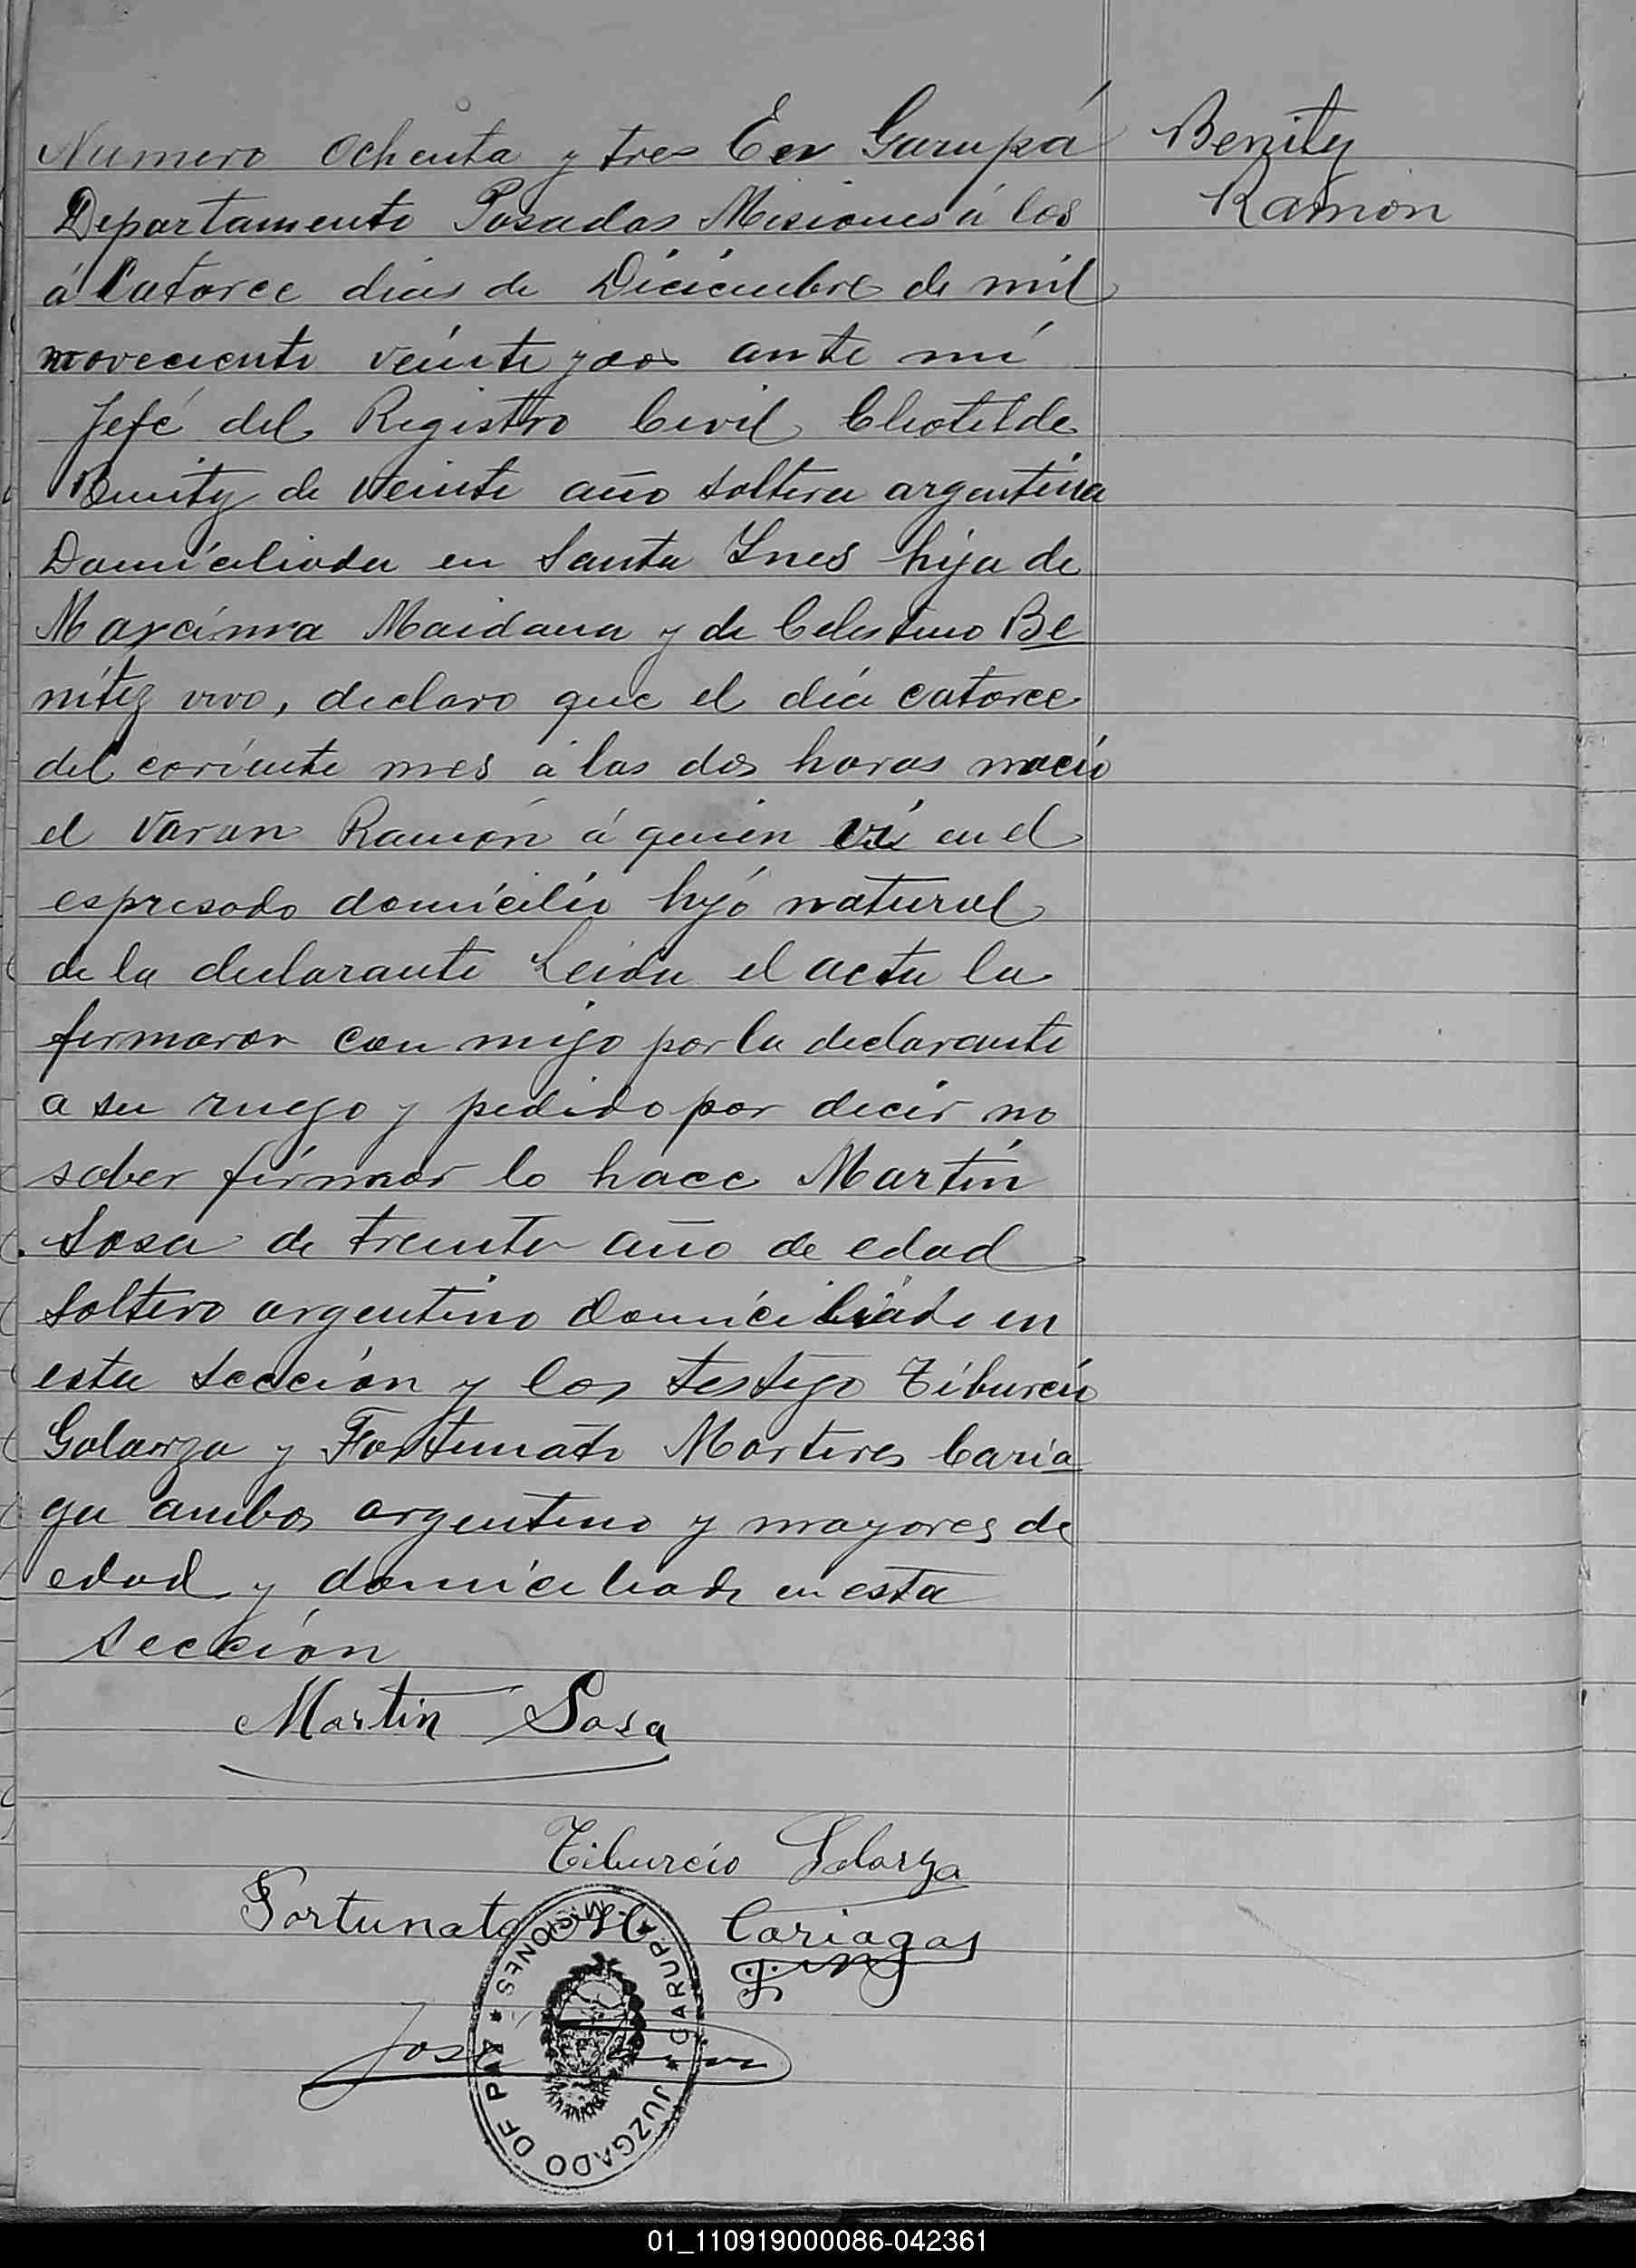 Numero ochenta y tres En Garupá
Departamento Posadas Misiones á los
á Catorce dias de Diciembre de mil
noveciento veinte y dos ante mi
Jefé del Registro Civil Cleotilde
Benitez de veinte año soltera argentina
Domiciliada en Santa Ynes hija de
Maxcima Maidana y de Celestino Be
nitez vivo, declaro que el dia catorce
del coriente mes a las dos horas nació
el varon Ramón á quien vi en el
espresado domicilio hijó natural
de la declarante Leida el acta la
firmaron con migo por la declarante
a su ruego y pedido por decir no
saber firmar lo hace Martin
Sosa de treinta año de edad
soltero argentino domiciliado en
esta sección y los testigo Tiburcio
Galarza y Fortunato Martires Caria
ga ambos argentino y mayores de
edad y domiciliado en esta
sección
Benitez
Ramón
Martin Sosa
Tiburcio Galarza
Fortunato M. Cariagas
José
JUZGADO DE PAZ ★ MISIONES ★ GARUPA
01_110919000086-042361